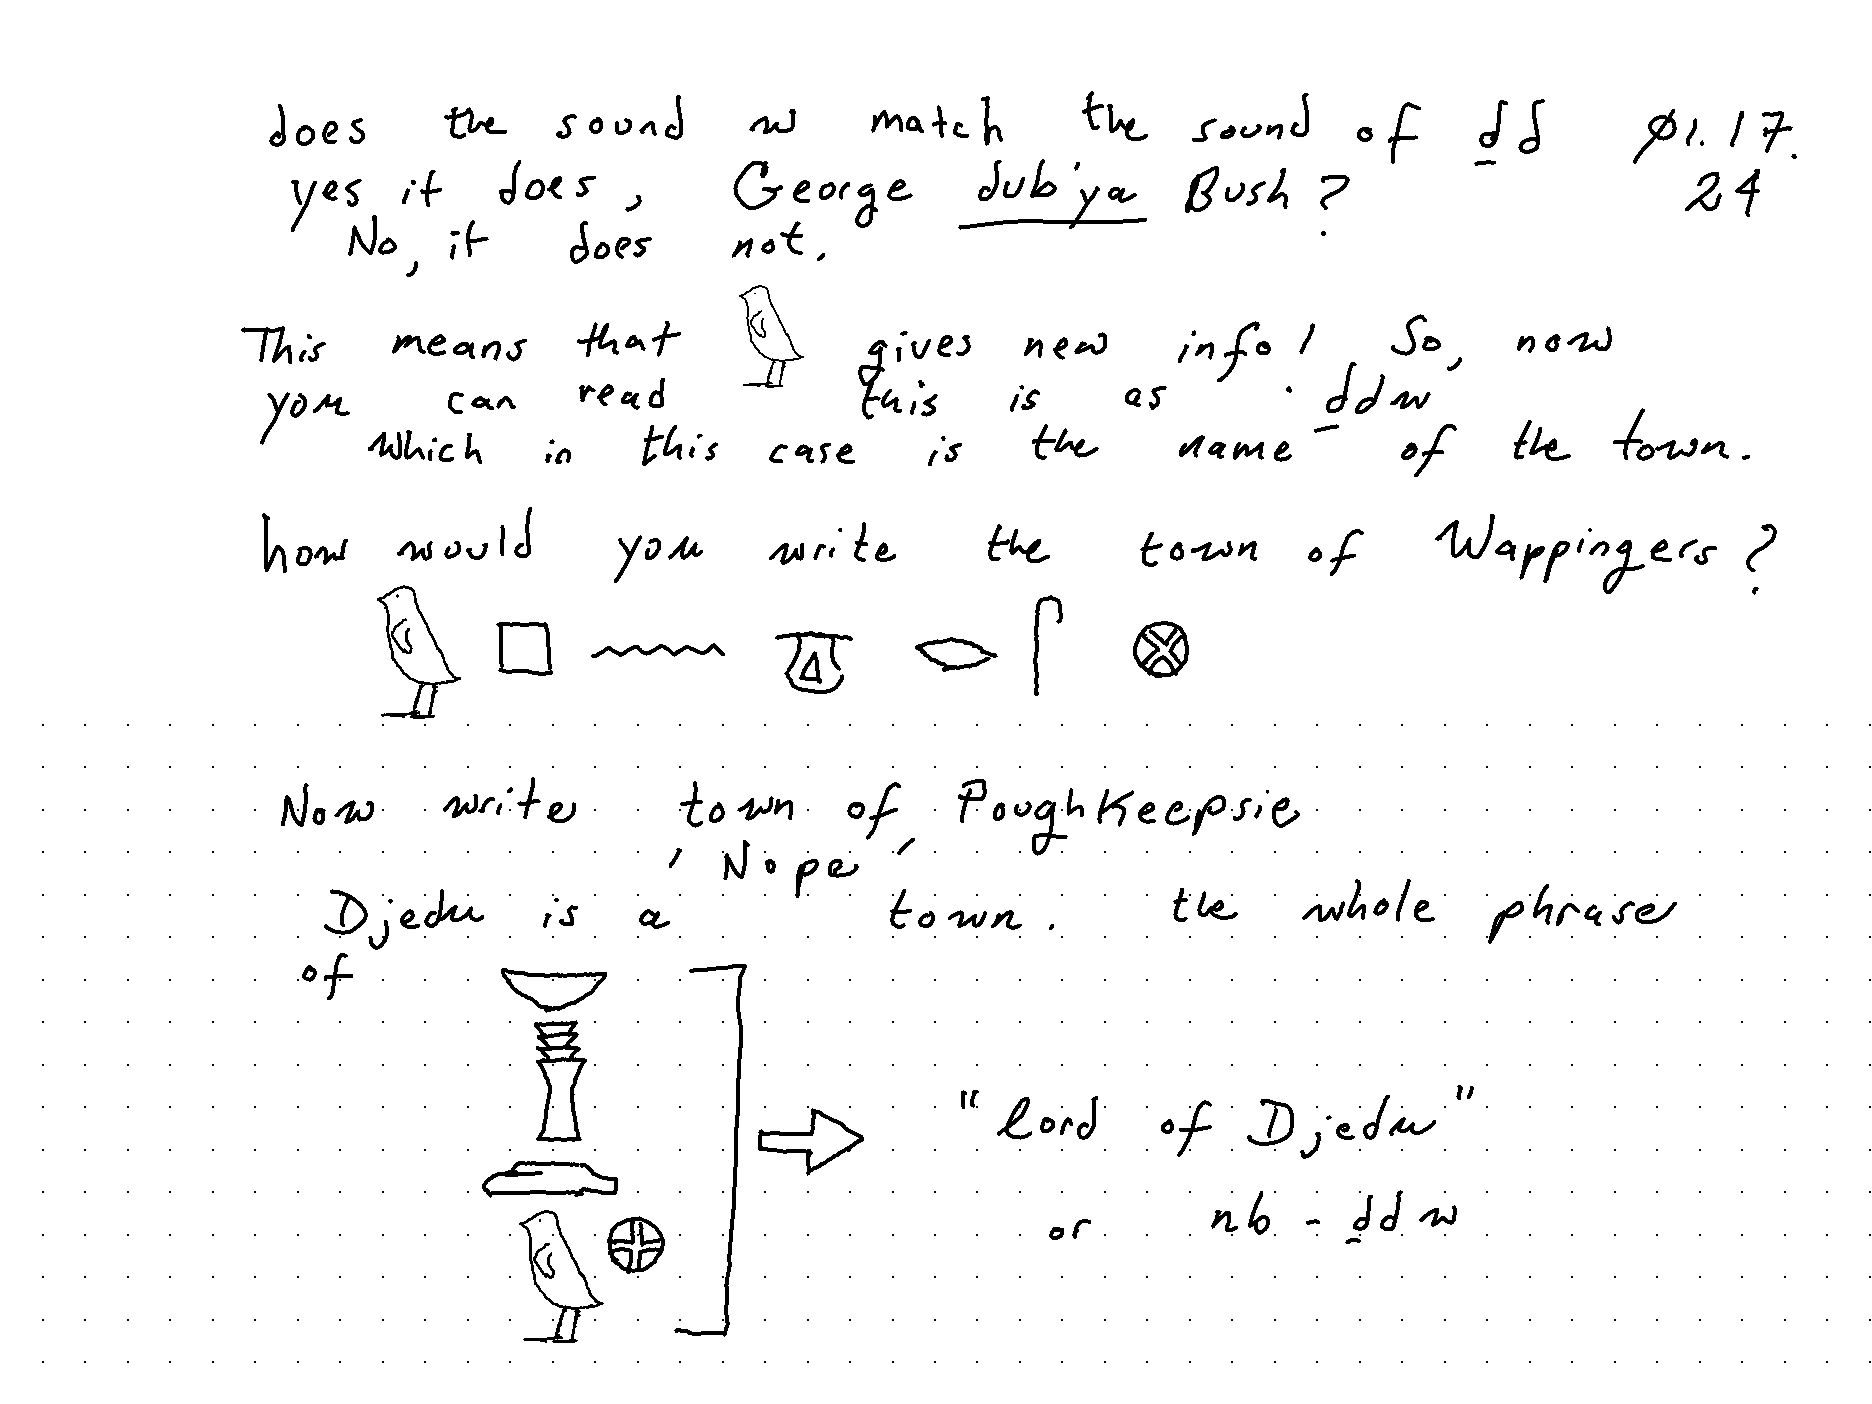 does the sound w match the sound of ḏd 01.17.
yes it does, George dub'ya Bush? 24
No, it does not.
This means that 𓅱 gives new info! So, now
you can read this is as ḏdw
which in this case is the name of the town.
how would you write the town of Wappingers?
𓅱 𓊪 𓈖 𓎼 𓂋 𓋴 𓊖
Now write town of Poughkeepsie
'Nope'
Djedu is a town. the whole phrase
of
𓎟
𓊽
𓂧
𓅱 𓊖
"lord of Djedu"
or nb - ḏdw